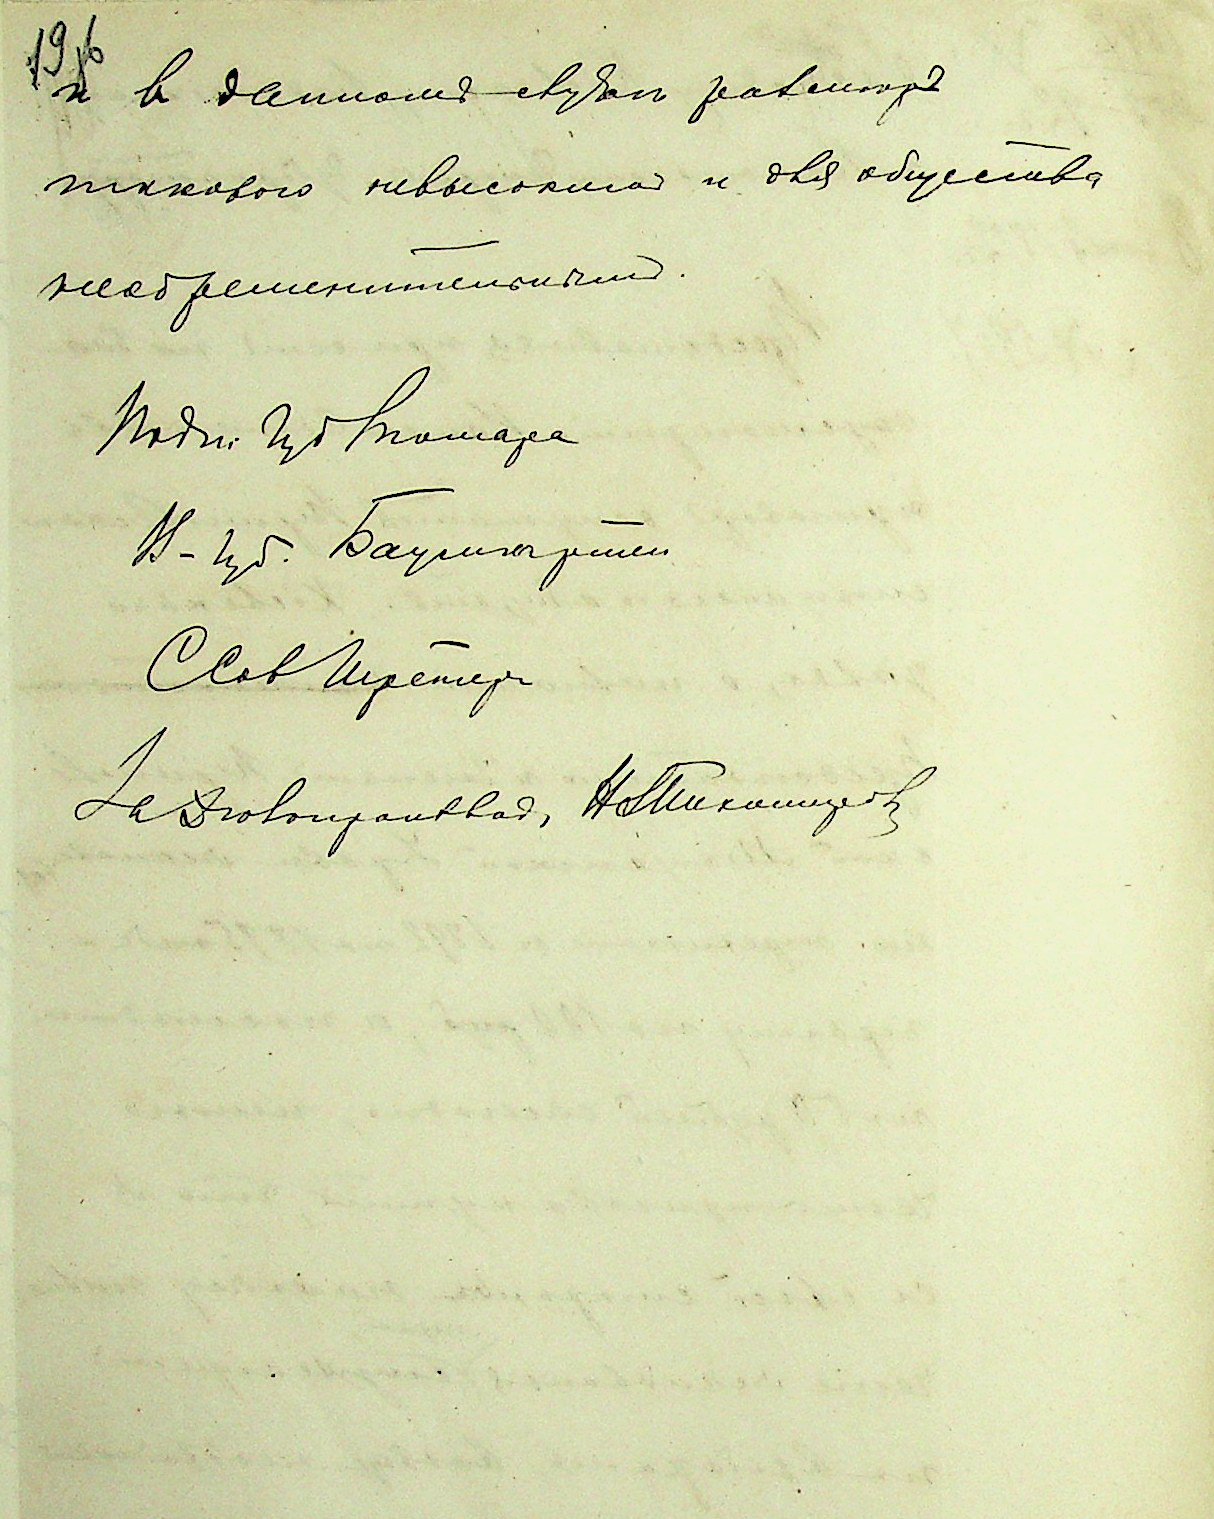 19
и в данномъ случаѣ размѣръ
таковаго невысокимъ и для общества
необременительнымъ.
Подп. Губ
В-Губ. Баумгартен
С Сов Шретер
За Дѣлопроизвод, Н Тихомиров